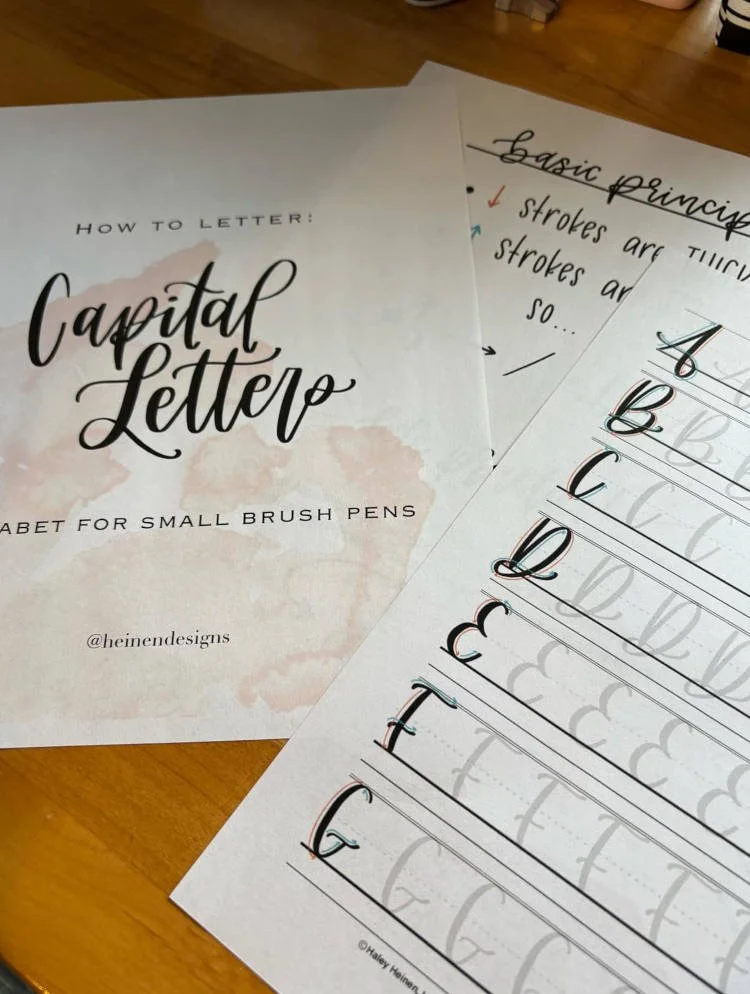 HOW TO LETTER:
Capital
Letters
FOR SMALL BRUSH PENS
@heinendesigns
basic
↓ strokes are
↑ strokes
so...
→ /
A
B B B
C C C
D D D D
E E E E E
F F F F F
G G G G
©Haley Heinen,